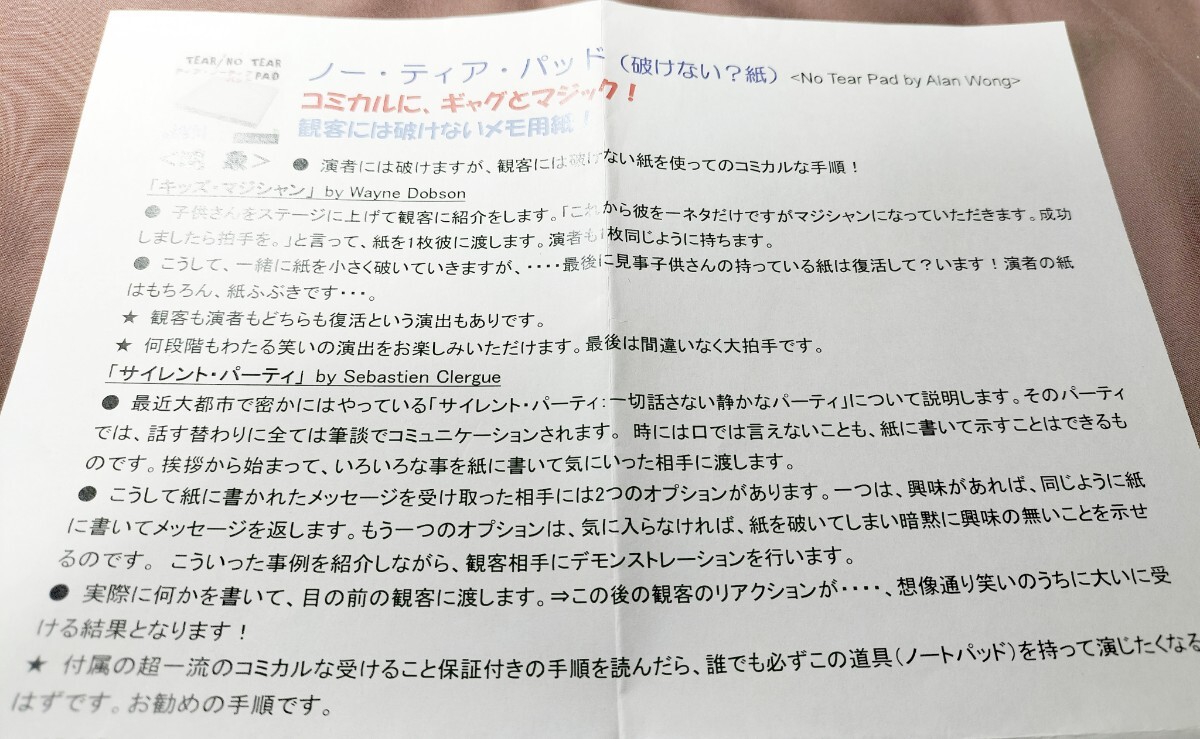 TEAR/NO TEAR
PAD
ノー・ティア・パッド（破けない？紙）<No Tear Pad by Alan Wong>
コミカルに、ギャグとマジック！
観客には破けないメモ用紙！
<現 象> ● 演者には破けますが、観客には破けない紙を使ってのコミカルな手順！
「キッズ・マジシャン」 by Wayne Dobson
● 子供さんをステージに上げて観客に紹介をします。「これから彼を一ネタだけですがマジシャンになっていただきます。成功
しましたら拍手を。」と言って、紙を1枚彼に渡します。演者も1枚同じように持ちます。
● こうして、一緒に紙を小さく破いていきますが、・・・・最後に見事子供さんの持っている紙は復活して？います！演者の紙
はもちろん、紙ふぶきです・・・。
★ 観客も演者もどちらも復活という演出もありです。
★ 何段階もわたる笑いの演出をお楽しみいただけます。最後は間違いなく大拍手です。
「サイレント・パーティ」 by Sebastien Clergue
● 最近大都市で密かにはやっている「サイレント・パーティ：一切話さない静かなパーティ」について説明します。そのパーティ
では、話す替わりに全ては筆談でコミュニケーションされます。 時には口では言えないことも、紙に書いて示すことはできるも
のです。挨拶から始まって、いろいろな事を紙に書いて気にいった相手に渡します。
● こうして紙に書かれたメッセージを受け取った相手には2つのオプションがあります。一つは、興味があれば、同じように紙
に書いてメッセージを返します。もう一つのオプションは、気に入らなければ、紙を破いてしまい暗黙に興味の無いことを示せ
るのです。 こういった事例を紹介しながら、観客相手にデモンストレーションを行います。
● 実際に何かを書いて、目の前の観客に渡します。⇒この後の観客のリアクションが・・・・、想像通り笑いのうちに大いに受
ける結果となります！
★ 付属の超一流のコミカルな受けること保証付きの手順を読んだら、誰でも必ずこの道具（ノートパッド）を持って演じたくなる
はずです。お勧めの手順です。